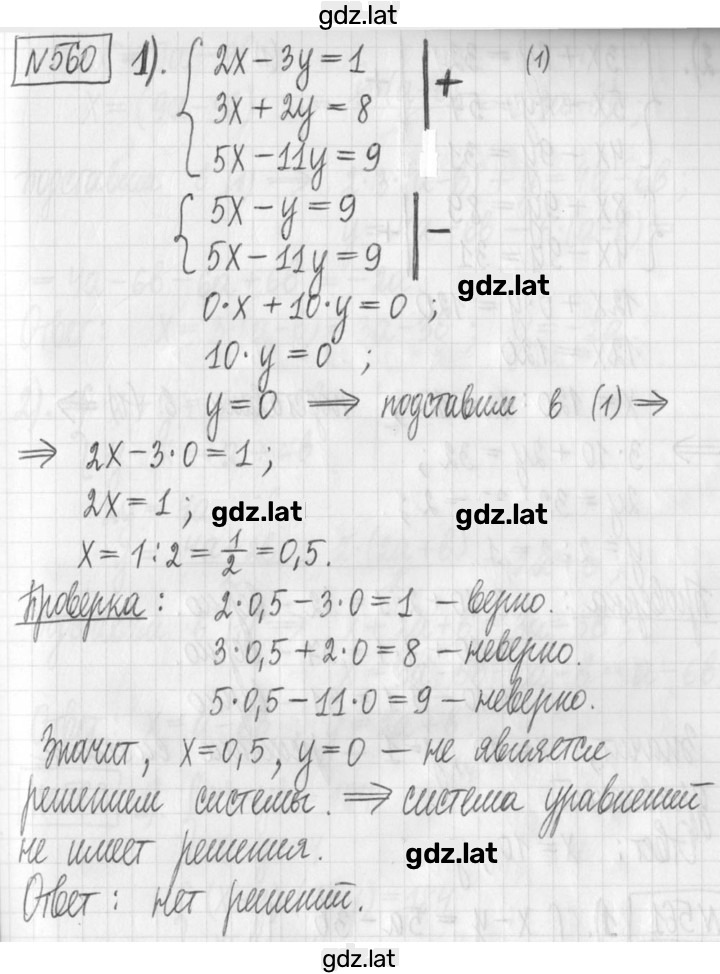 gdz.lat
№560 1). { 2x − 3y = 1 (1)
3x + 2y = 8 | +
5x − 11y = 9
{ 5x − y = 9
5x − 11y = 9 | −
gdz.lat
0·x + 10·y = 0 ;
10·y = 0 ;
y = 0 ⟹ подставим в (1) ⇒
⇒ 2x − 3·0 = 1 ;
2x = 1 ; gdz.lat gdz.lat
x = 1 : 2 = 1/2 = 0,5.
Проверка : 2·0,5 − 3·0 = 1 – верно.
3·0,5 + 2·0 = 8 – неверно.
5·0,5 − 11·0 = 9 – неверно.
Значит, x = 0,5, y = 0 – не является
решением системы. ⇒ система уравнений
не имеет решения. gdz.lat
Ответ : нет решений.
gdz.lat